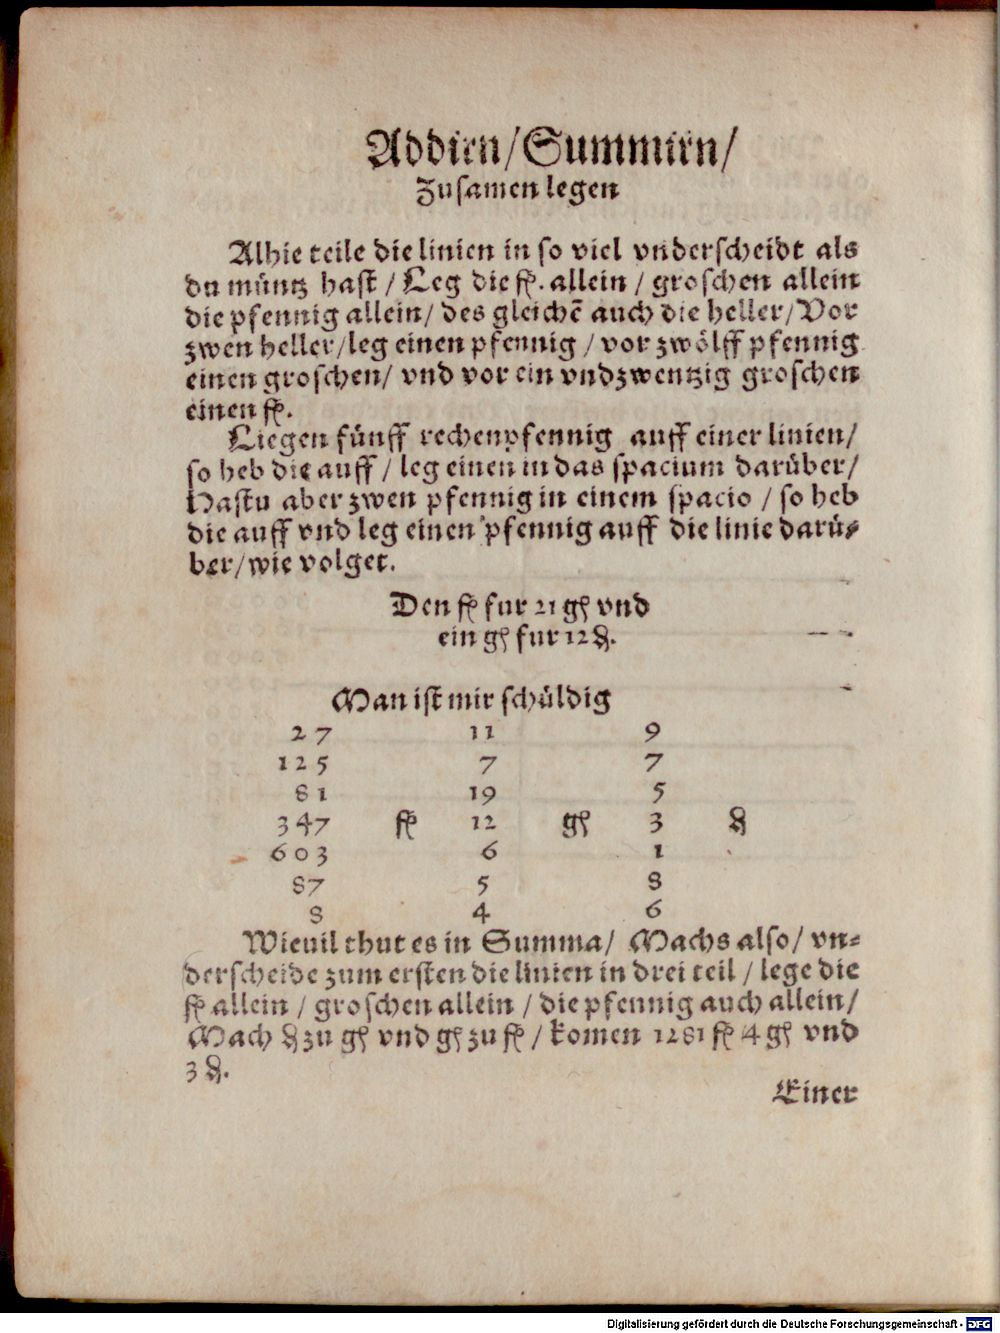 Addirn/Summirn/
Zusamen legen
Alhie teile die linien in so viel vnderscheidt als
du müntz hast / Leg die fl. allein / groschen allein
die pfennig allein/ des gleichē auch die heller/Vor
zwen heller/leg einen pfennig / vor zwölff pfennig
einen groschen/ vnd vor ein vndzwentzig groschen
einen fl.
Liegen fünff rechenpfennig auff einer linien/
so heb die auff / leg einen in das spacium darüber/
Hastu aber zwen pfennig in einem spacio / so heb
die auff vnd leg einen pfennig auff die linie darü-
ber/wie volget.
Den fl fur 21 gß vnd
ein gß fur 12 ₰.
Man ist mir schüldig
27 11 9
125 7 7
81 19 5
347 fl 12 gß 3 ₰
603 6 1
87 5 8
8 4 6
Wieuil thut es in Summa/ Machs also/ vn-
derscheide zum ersten die linien in drei teil / lege die
fl allein / groschen allein / die pfennig auch allein/
Mach ₰ zu gß vnd gß zu fl / komen 1281 fl /4 gß vnd
3 ₰.
Einer
Digitalisierung gefördert durch die Deutsche Forschungsgemeinschaft - DFG